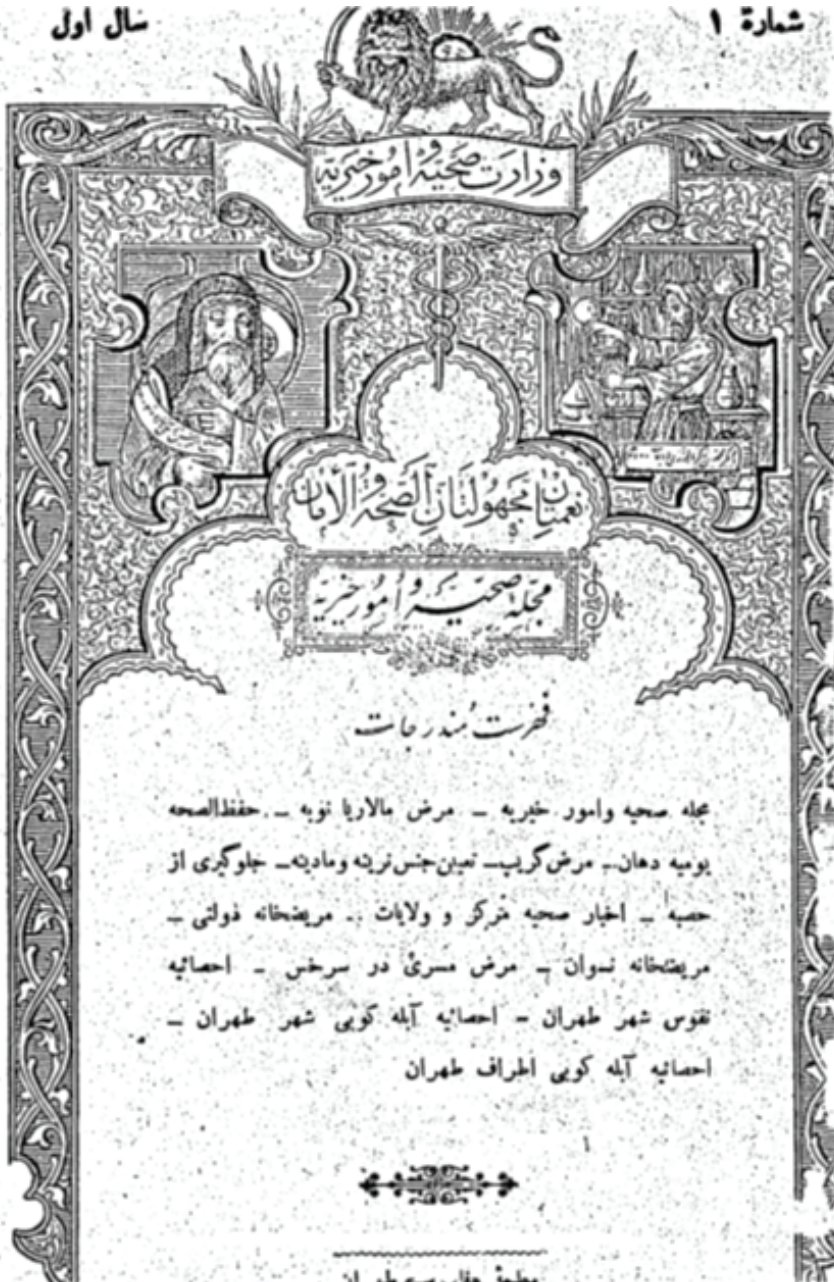 شمارهٔ ۱
سال اول
وزارت صحیه و امور خیریه
نعمتان مجهولتان الصحة و الأمان
مجله صحیه و امور خیریه
فهرست مندرجات
مجله صحیه وامور خیریه – مرض مالاریا نوبه – حفظ‌الصحه
یومیه دهان – مرض گریپ – تعیین جنس نرینه ومادینه – جلوگیری از
حصبه – اخبار صحیه مرکز و ولایات – مریضخانه دولتی –
مریضخانه نسوان – مرض مسری در سرخس – احصائیه
نفوس شهر طهران – احصائیه آبله کوبی شهر طهران –
احصائیه آبله کوبی اطراف طهران